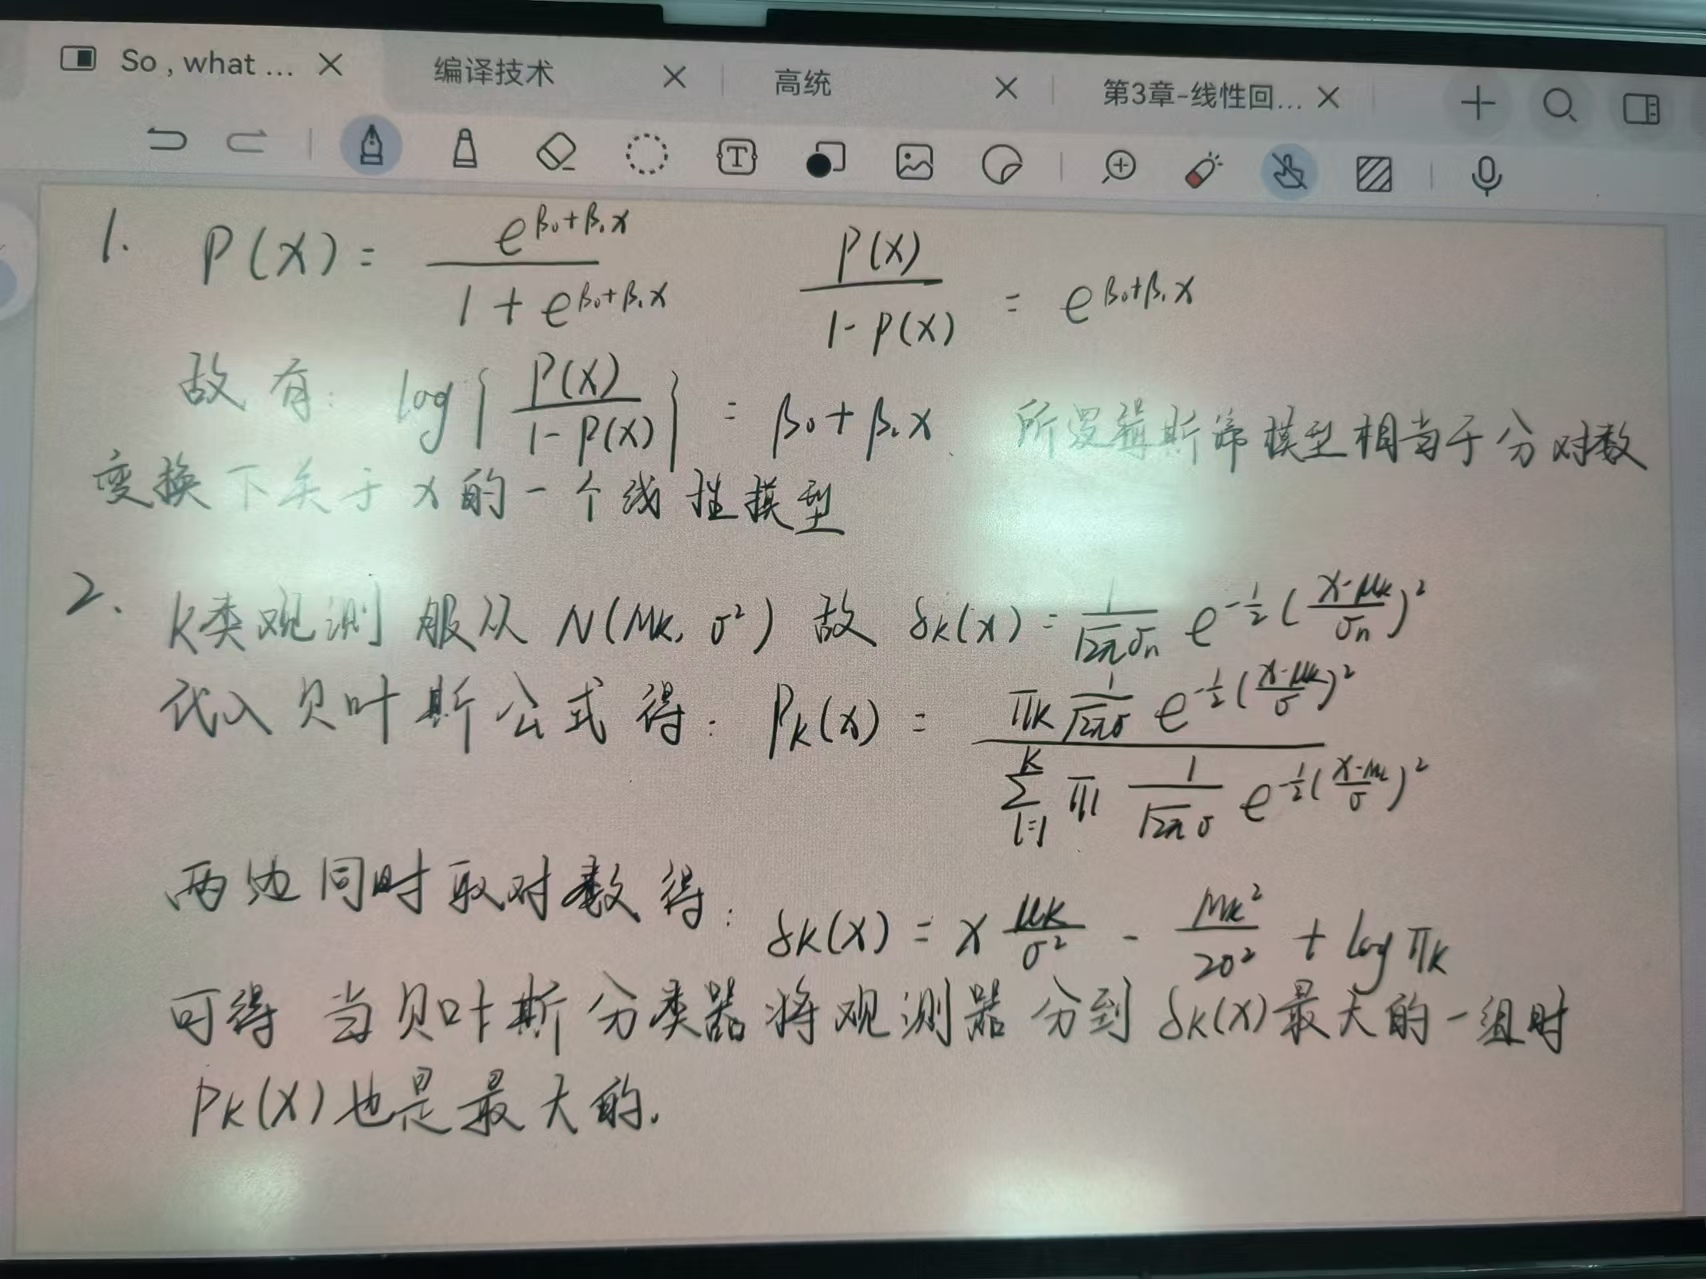 So , what ... × 编译技术 × 高统 × 第3章-线性回... ×
1. P(X) = e^{β₀+β₁x} / (1 + e^{β₀+β₁x})   P(X) / (1-P(X)) = e^{β₀+β₁x}
故有: log{ P(X) / (1-P(X)) } = β₀+β₁x 所罗辑斯谛模型相当于分对数
变换下关于x的一个线性模型
2. K类观测服从 N(μk, σ²) 故 δk(x) = 1/(√2π σn) e^{-1/2 ((x-μk)/σn)²}
代入贝叶斯公式得: Pk(x) = πk 1/(√2π σ) e^{-1/2 ((x-μk)/σ)²} / Σ_{l=1}^{K} πl 1/(√2π σ) e^{-1/2 ((x-μl)/σ)²}
两边同时取对数得: δk(x) = x μk/σ² - μk²/2σ² + log πk
可得 当贝叶斯分类器将观测器分到 δk(x)最大的一组时
Pk(X)也是最大的.